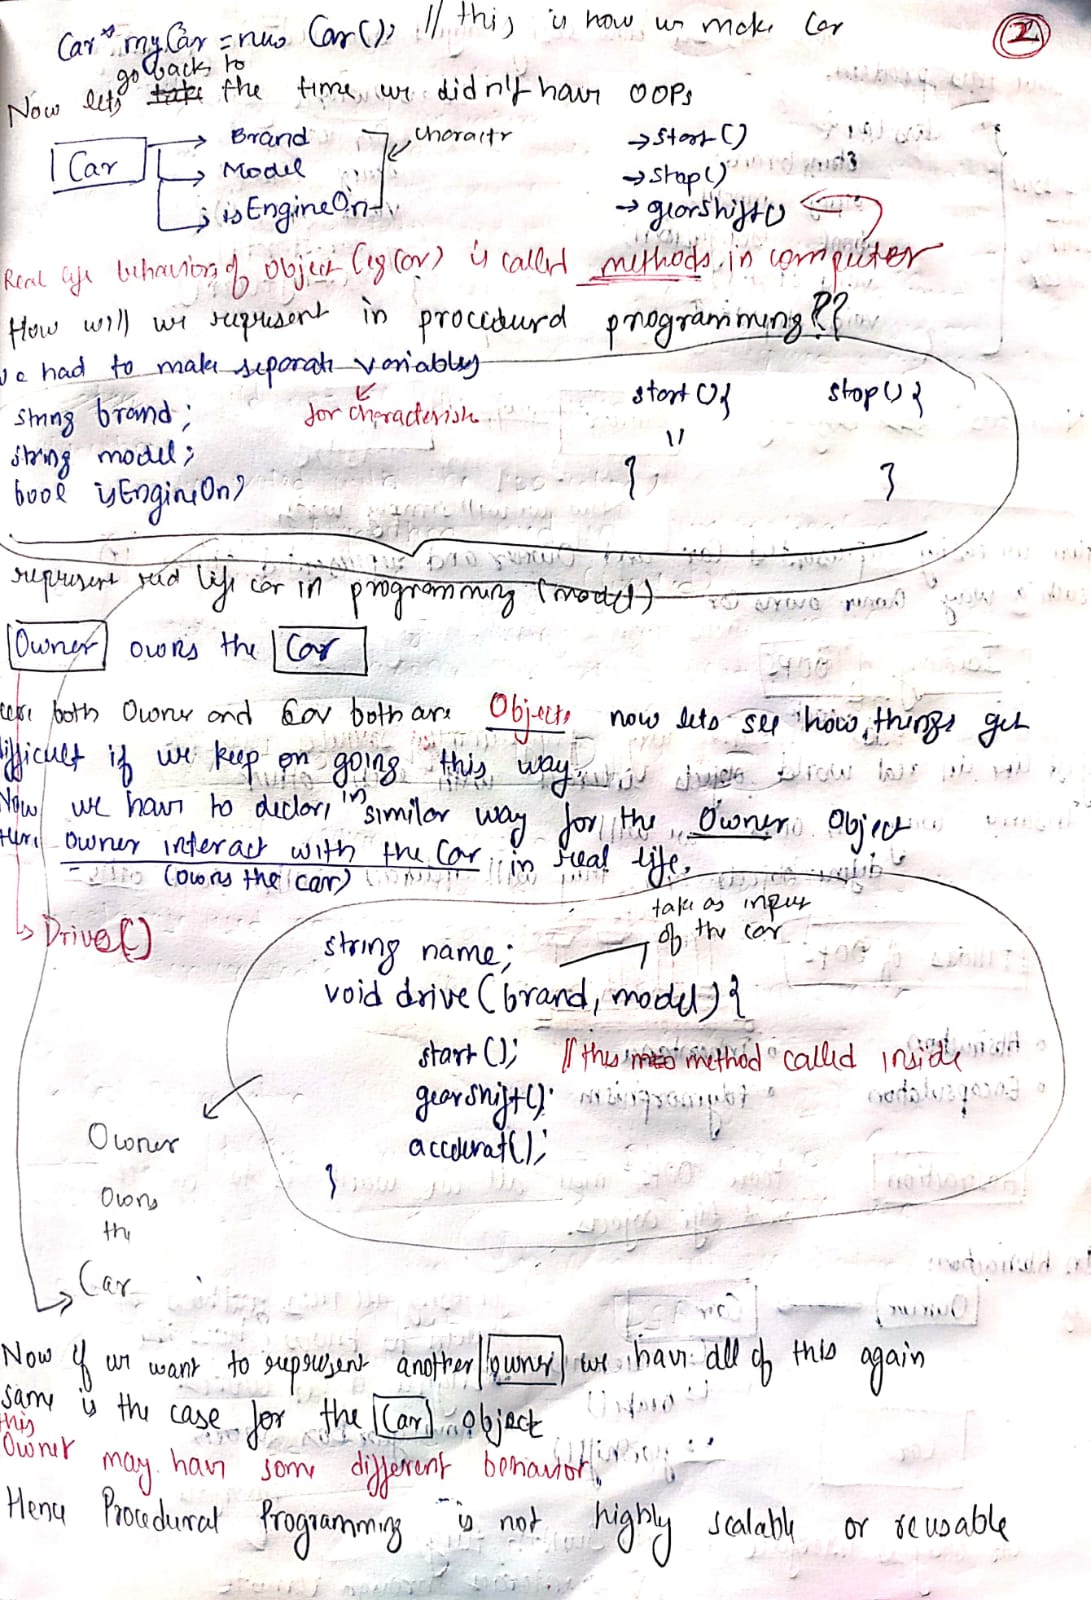 Car* myCar = new Car(); // this is how we make Car
2
go back to
Now lets take the time, we didn't have OOPs
Car
Brand
Model
isEngineOn
charactr
→ start()
→ stop()
→ gearshift()
Real life behaviors of object (eg Car) is called methods in computer
How will we represent in procedural programming??
we had to make separate variables
for characteristic
string brand;
string model;
bool isEngineOn;
start() {
}
stop() {
}
represent real life car in programming (model)
Owner owns the Car
both Owner and Car both are Objects now lets see how things get
difficult if we keep on going this way.
Now we have to declare in similar way for the Owner Object
Here owner interact with the Car in real life.
(owns the car)
→ Drive()
take as input
of the car
string name;
void drive (brand, model) {
start(); // this method called inside
gearshift();
accelerat();
}
Owner
Owns
the
Car
Now if we want to represent another owner we have all of this again
same is the case for the Car object
this
Owner may have some different behavior.
Hence Procedural Programming is not highly scalable or reusable